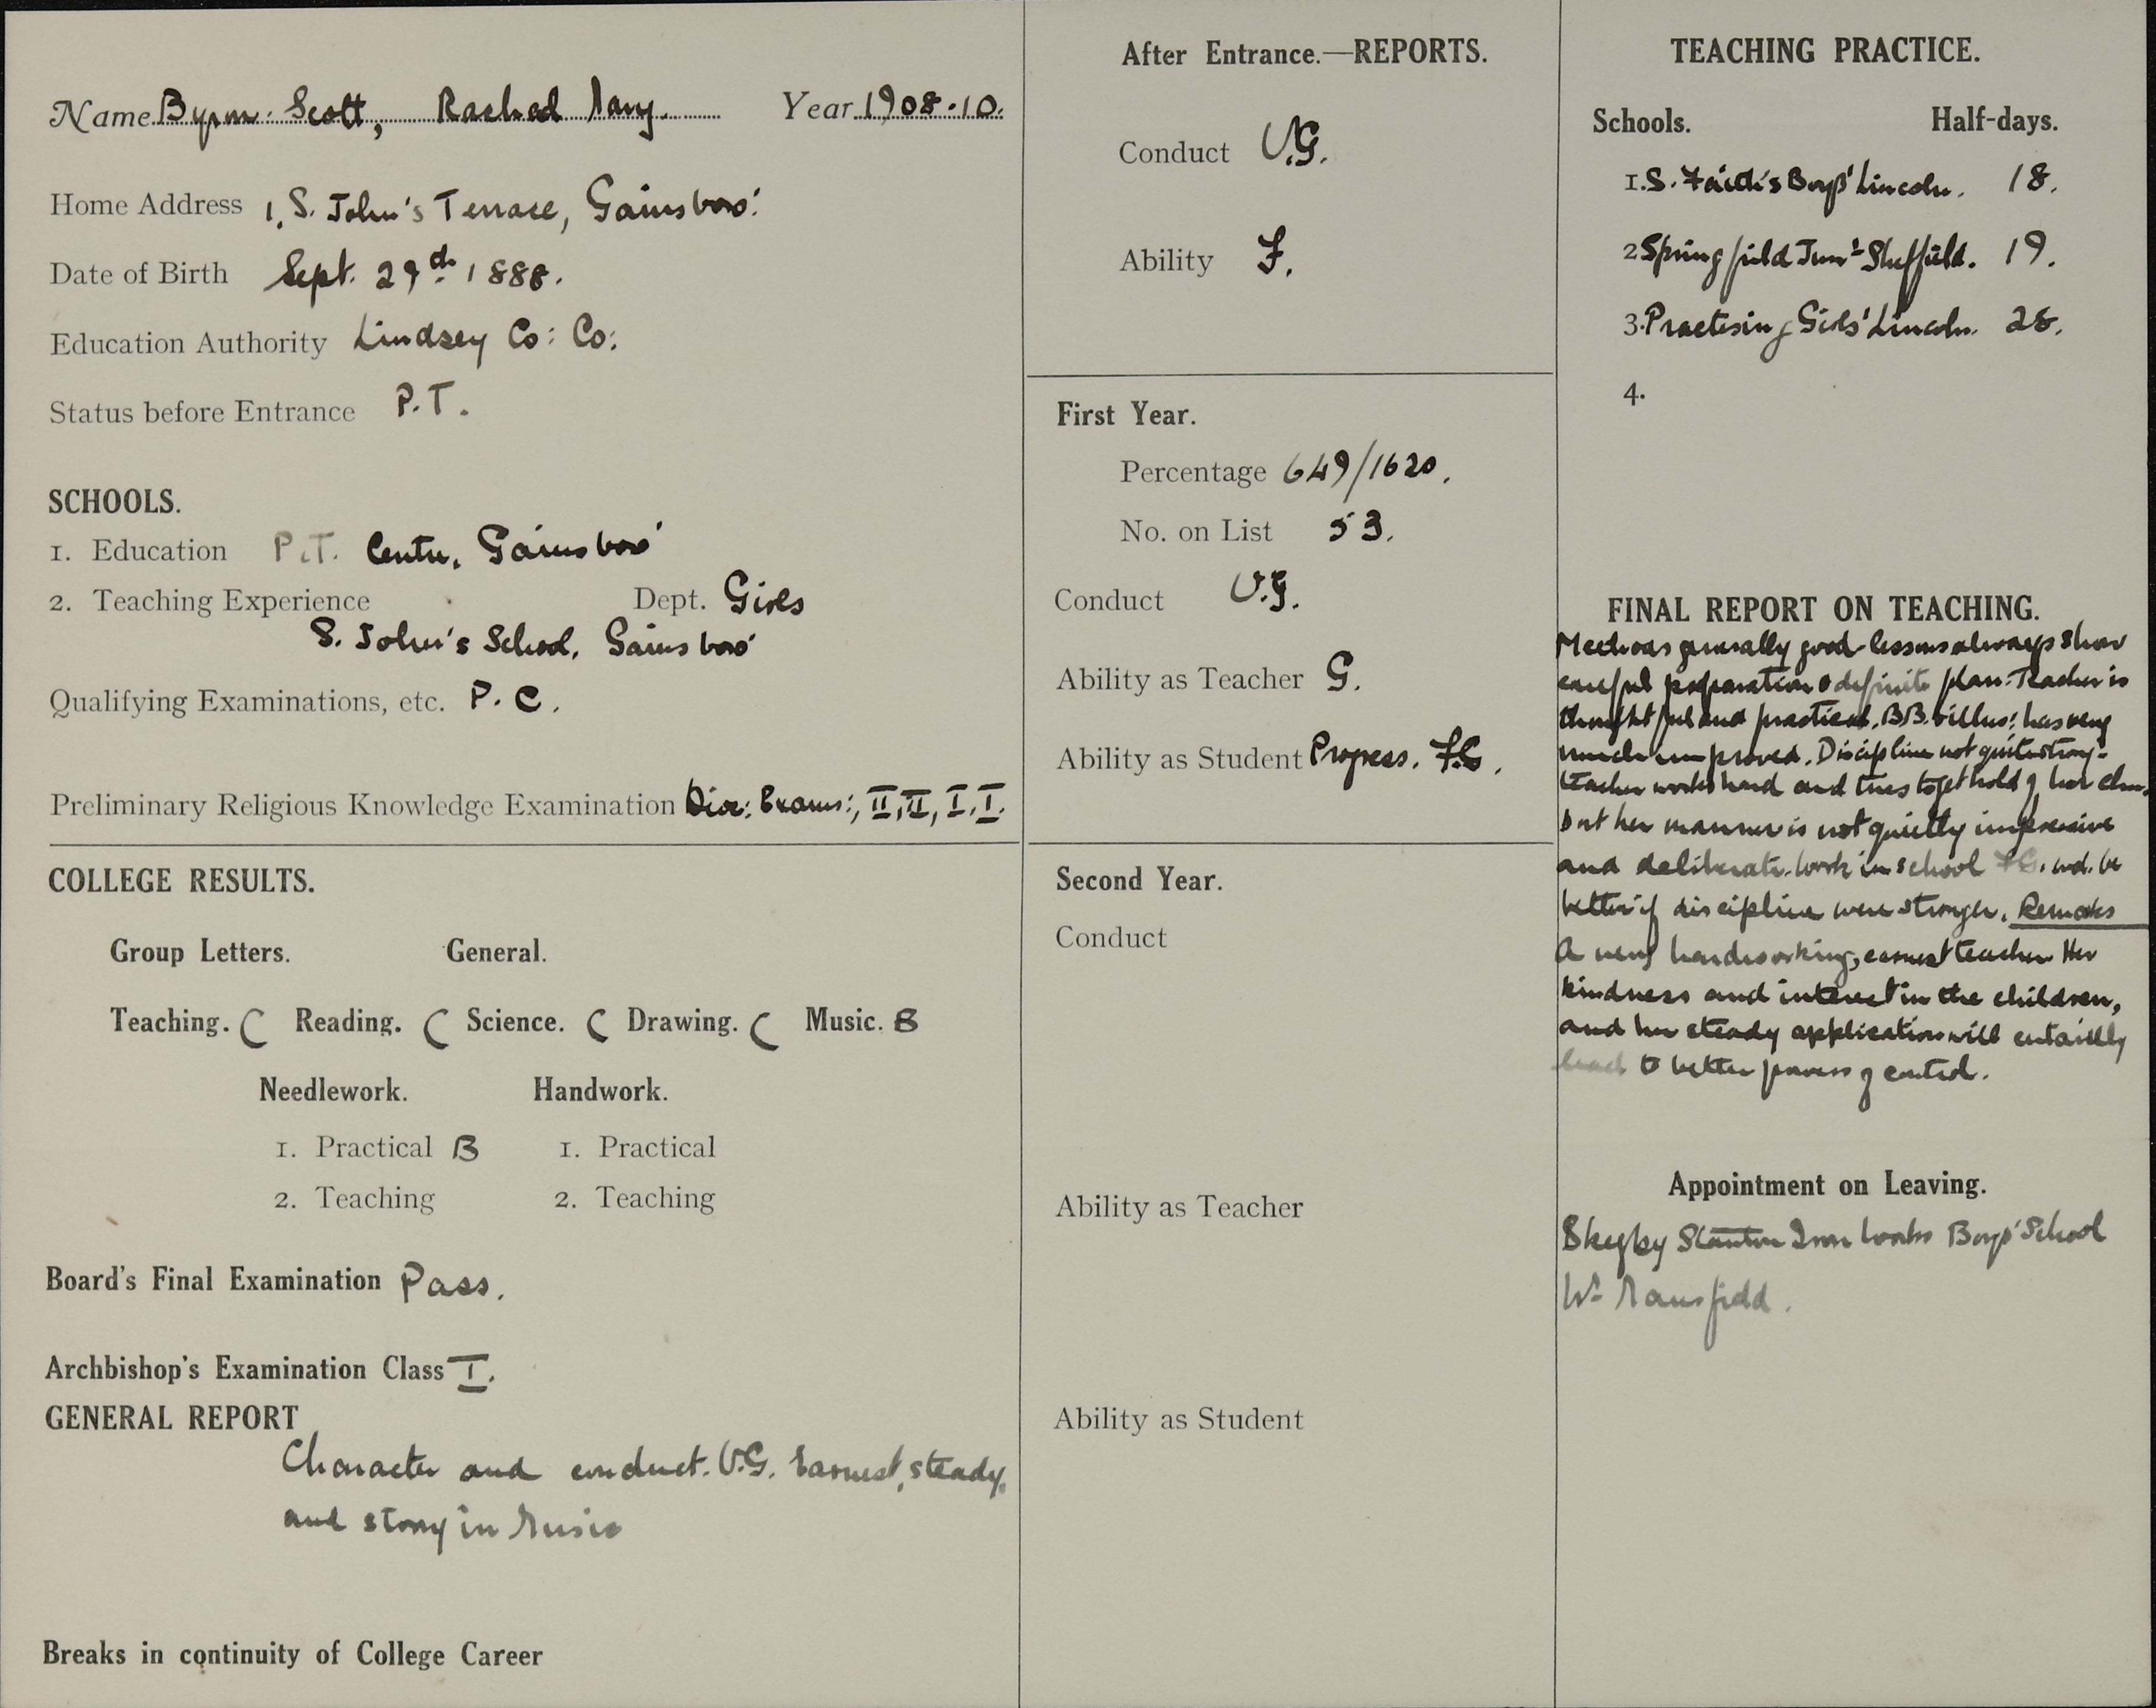 Name Byron-Scott, Rachel Mary. Year 1908-10.
Home Address 1, S. John's Terrace, Gainsboro'.
Date of Birth Sept. 29th 1888.
Education Authority Lindsey Co: Co:
Status before Entrance P.T.
SCHOOLS.
1. Education P.T. Centre, Gainsboro'
2. Teaching Experience Dept. Girls
S. John's School, Gainsboro'
Qualifying Examinations, etc. P.C.
Preliminary Religious Knowledge Examination Dio: Exams:, II, II, I, I.
COLLEGE RESULTS.
Group Letters. General.
Teaching. C Reading. C Science. C Drawing. C Music. B
Needlework. Handwork.
1. Practical B 1. Practical
2. Teaching 2. Teaching
Board's Final Examination Pass.
Archbishop's Examination Class I.
GENERAL REPORT
Character and conduct. V.G. Earnest, steady,
and strong in Music
Breaks in continuity of College Career
After Entrance.—REPORTS.
Conduct V.G.
Ability F.
First Year.
Percentage 649/1620.
No. on List 53.
Conduct V.G.
Ability as Teacher G.
Ability as Student Progress. F.G.
Second Year.
Conduct
Ability as Teacher
Ability as Student
TEACHING PRACTICE.
Schools. Half-days.
1. S. Faith's Boys' Lincoln. 18.
2 Springfield Junr Sheffield. 19.
3. Practising Girls' Lincoln. 28.
4.
FINAL REPORT ON TEACHING.
Methods generally good - lessons always show
careful preparation & definite plan. Teacher is
thoughtful and practical. B.B. has very
much improved. Discipline not quite strong-
teacher works hard and tries to get hold of her class
but her manner is not quietly impressive
and deliberate. Work in school F.G. wd. be
better if discipline were stronger. Remarks
A very hardworking, earnest teacher. Her
kindness and interest in the children,
and her steady application will certainly
lead to better powers of control.
Appointment on Leaving.
Skegby Stanton Iron Works Boys' School
Nr Mansfield.